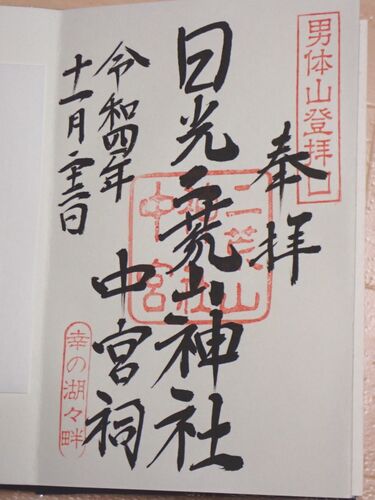 男体山登拝口
奉拝
日光二荒山神社
中宮祠
令和四年
十一月二十三日
二荒山
神社
中宮
幸の湖々畔